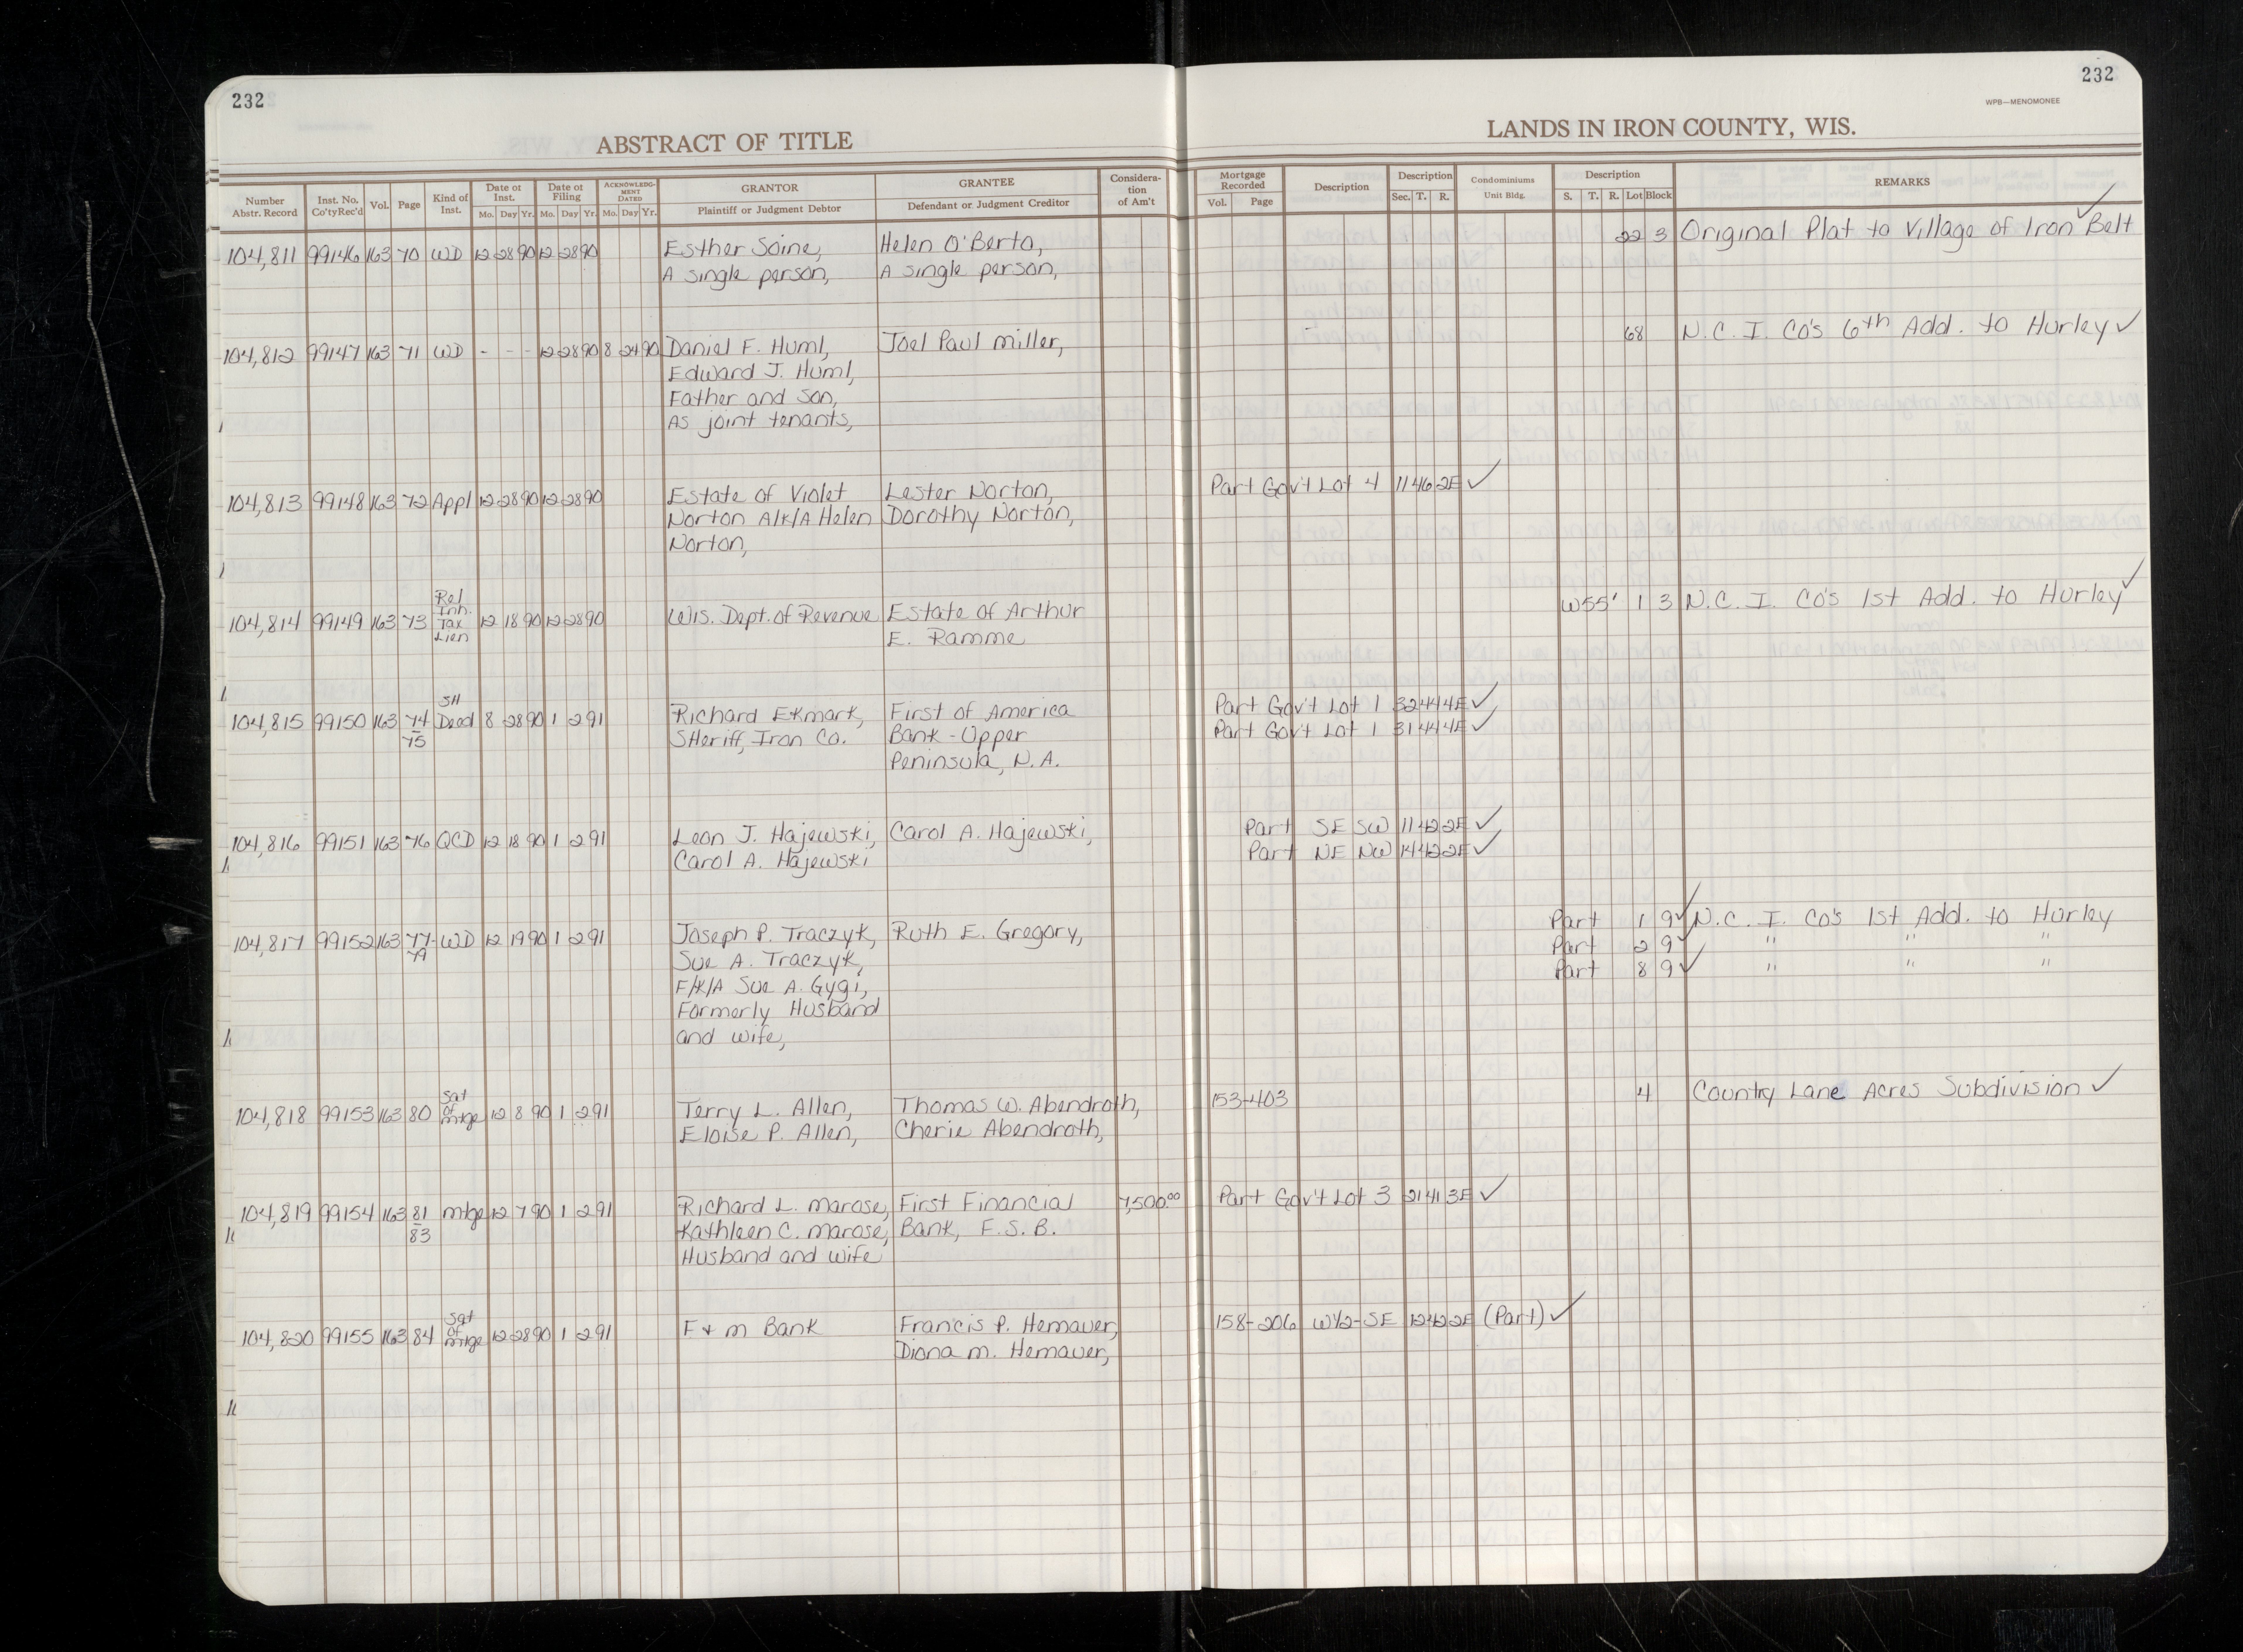 232
232
WPB—MENOMONEE
ABSTRACT OF TITLE
LANDS IN IRON COUNTY, WIS.
Number Abstr. Record | Inst. No. Co'tyRec'd | Vol. | Page | Kind of Inst. | Date of Inst. Mo. Day Yr. | Date of Filing Mo. Day Yr. | ACKNOWLEDG-MENT DATED Mo. Day Yr. | GRANTOR Plaintiff or Judgment Debtor | GRANTEE Defendant or Judgment Creditor | Considera-tion of Am't | Mortgage Recorded Vol. Page | Description | Description Sec. T. R. | Condominiums Unit Bldg. | Description S. T. R. Lot Block | REMARKS
104,811 99146 163 70 WD 12 28 90 12 28 90 Esther Saine, Helen O'Berto, 22 3 Original Plat to Village of Iron Belt ✓
A single person, A single person,
104,812 99147 163 71 WD - - - 12 28 90 8 24 90 Daniel F. Huml, Joel Paul Miller, 68 N.C. I. Co's 6th Add. to Hurley ✓
Edward J. Huml,
Father and Son,
As joint tenants,
104,813 99148 163 72 Appl 12 28 90 12 28 90 Estate of Violet Lester Norton, Part Gov't Lot 4 11 46 2E ✓
Norton A/K/A Helen Dorothy Norton,
Norton,
104,814 99149 163 73 Rel Inh. Tax Lien 12 18 90 12 28 90 Wis. Dept. of Revenue Estate of Arthur W55' 1 3 N.C. I. Co's 1st Add. to Hurley ✓
E. Ramme
104,815 99150 163 74 SH Deed 8 28 90 1 2 91 Richard Ekmark, First of America Part Gov't Lot 1 32 44 4E ✓
75 SHeriff, Iron Co. Bank - Upper Part Gov't Lot 1 31 44 4E ✓
Peninsula, N.A.
104,816 99151 163 76 QCD 12 18 90 1 2 91 Leon J. Hajewski, Carol A. Hajewski, Part SE SW 11 42 2E ✓
Carol A. Hajewski Part NE NW 14 42 2E ✓
104,817 99152 163 77- WD 12 19 90 1 2 91 Joseph P. Traczyk, Ruth E. Gregory, Part 1 9 ✓ N.C. I. Co's 1st Add. to Hurley
79 Sue A. Traczyk, Part 2 9 ✓ " " "
F/K/A Sue A. Gygi, Part 8 9 ✓ " " "
Formerly Husband
and wife,
104,818 99153 163 80 Sat of mtge 12 8 90 1 2 91 Terry L. Allen, Thomas W. Abendroth, 153-403 4 Country Lane Acres Subdivision ✓
Eloise P. Allen, Cherie Abendroth,
104,819 99154 163 81 mtge 12 7 90 1 2 91 Richard L. Marose, First Financial 7,500.00 Part Gov't Lot 3 21 41 3E ✓
83 Kathleen C. Marose, Bank, F.S.B.
Husband and wife
104,820 99155 163 84 Sat of mtge 12 28 90 1 2 91 F & M Bank Francis P. Hemauer, 158-206 W½-SE 12 42 2E (Part) ✓
Diona M. Hemauer,